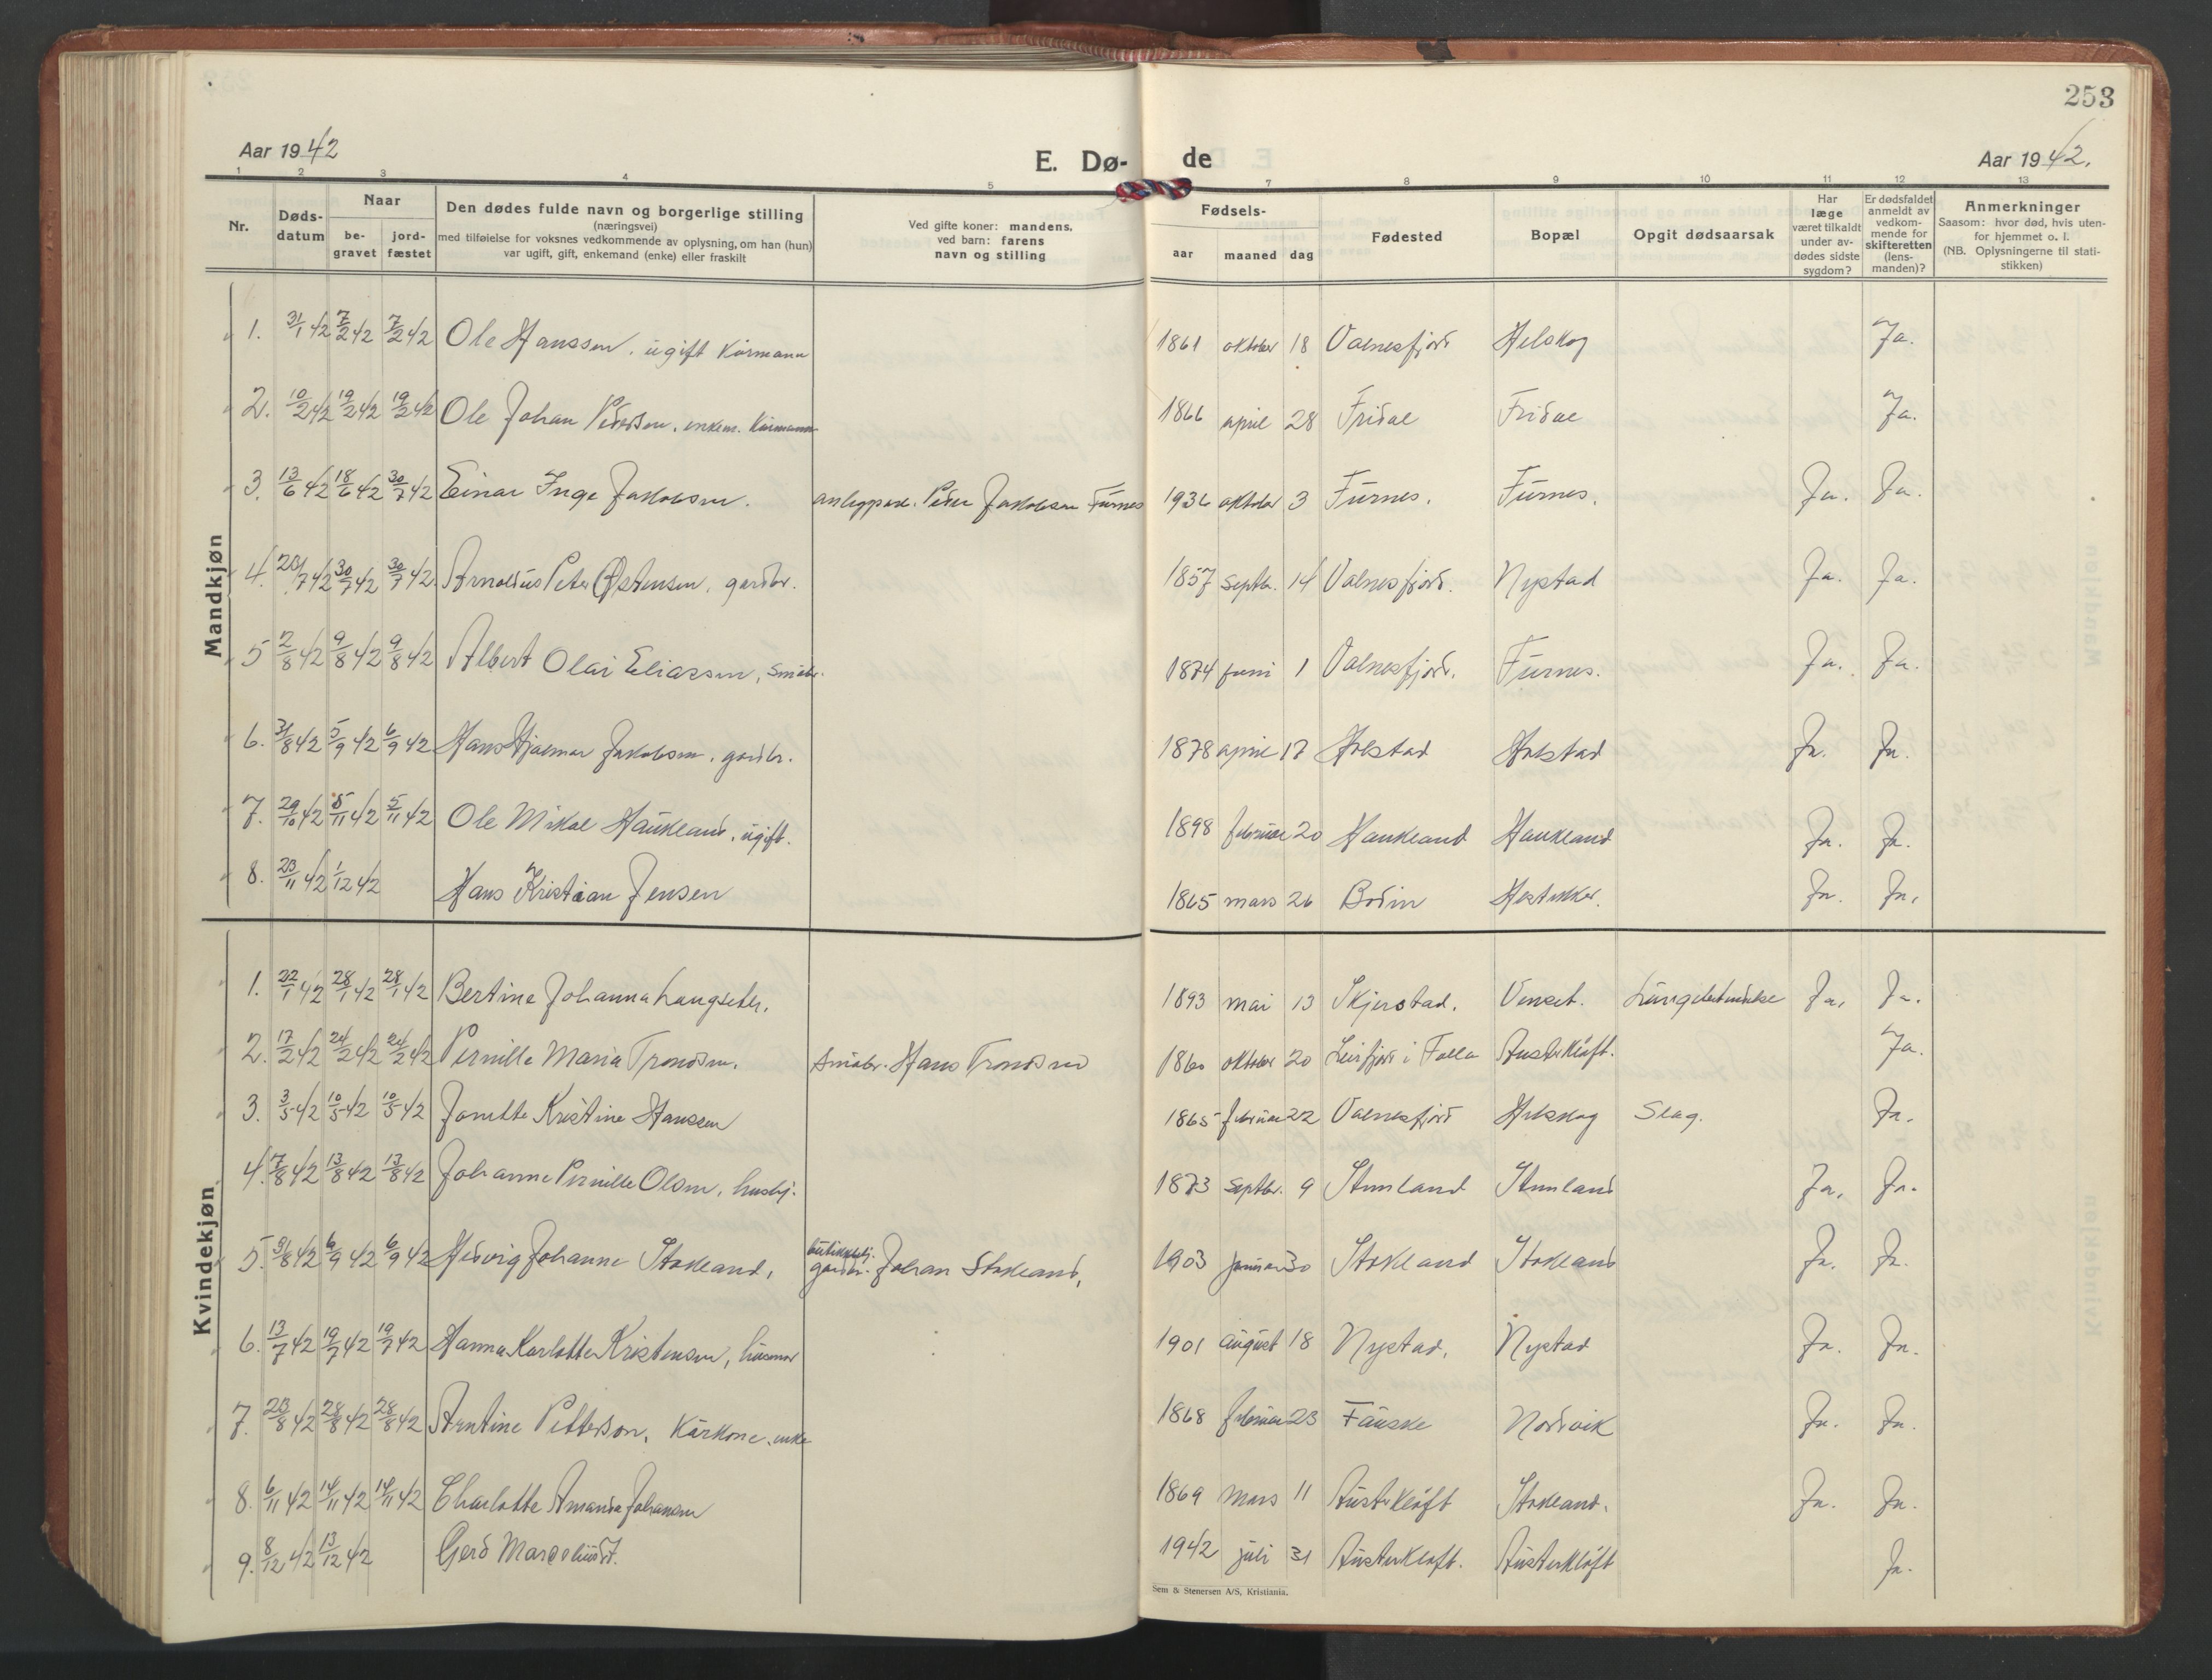 253
Aar 1942
E. Dø- de
Aar 1942.
1 2 3 4 5 7 8 9 10 11 12 13
Nr.
Døds-
datum
Naar
be-
gravet
jord-
fæstet
Den dødes fulde navn og borgerlige stilling
(næringsvei)
med tilføielse for voksnes vedkommende av oplysning, om han (hun)
var ugift, gift, enkemand (enke) eller fraskilt
Ved gifte koner: mandens,
ved barn: farens
navn og stilling
Fødsels-
aar maaned dag
Fødested
Bopæl
Opgit dødsaarsak
Har
læge
været tilkaldt
under av-
dødes sidste
sygdom?
Er dødsfaldet
anmeldt av
vedkom-
mende for
skifteretten
(lens-
manden)?
Anmerkninger
Saasom: hvor død, hvis uten-
for hjemmet o. l.
(NB. Oplysningerne til stati-
stikken)
Mandkjøn
1. 31/1 42 7/2 42 7/2 42 Ole Hanssen, ugift kårmann 1861 oktober 18 Valnesfjord Helskog Ja.
2. 10/2 42 19/2 42 19/2 42 Ole Johan Pedersen, enkem. kårmann 1866 april 28 Fridal Fridal Ja.
3. 13/6 42 18/6 42 30/7 42 Einar Inge Jakobsen. Peder Jakobsen Furnes 1936 oktober 3 Furnes. Furnes. Ja. Ja.
4. 20/7 42 30/7 42 30/7 42 Arnoldus Peter Østensen, gardbr. 1857 septbr. 14 Valnesfjord. Nystad Ja. Ja.
5 2/8 42 9/8 42 9/8 42 Albert Olai Eliassen, småbr. 1874 juni 1 Valnesfjord. Furnes. Ja. Ja.
6. 31/8 42 5/9 42 6/9 42 Hans Hjalmar Jakobsen, gardbr. 1878 april 17 Holstad Holstad Ja. Ja.
7. 29/10 42 5/11 42 5/11 42 Ole Mikal Haukland, ugift. 1898 februar 20 Haukland Haukland Ja. Ja.
8. 23/11 42 1/12 42 Hans Kristian Jensen 1865 mars 26 Bodin Ja. Ja.
Kvindekjøn
1. 22/1 42 28/1 42 28/1 42 Bertine Johanna Langseter. 1893 mai 13 Skjerstad. Venset. Lungebetendelse Ja. Ja.
2. 17/2 42 24/2 42 24/2 42 Pernille Maria Trondsen. Småbr. Hans Trondsen 1860 oktober 20 Leirfjord i Folla Austerkløft. Ja.
3. 3/5 42 10/5 42 10/5 42 Janette Kristine Hanssen 1865 februar 22 Valnesfjord Helskog Slag. Ja.
4. 7/8 42 13/8 42 13/8 42 Johanne Pernille Olsen, hushj. 1873 septbr. 9 Stemland Stemland Ja. Ja.
5. 31/8 42 6/9 42 6/9 42 Hedvig Johanne Stokland, gardbr. Johan Stokland, 1903 januar 30 Stokland Stokland Ja. Ja.
6. 13/7 42 19/7 42 19/7 42 Hanna Karlotte Kristensen, husmor 1901 august 18 Nystad. Nystad Ja. Ja.
7. 23/8 42 28/8 42 28/8 42 Arntine Pettersen, kårkone, enke 1868 februar 23 Fauske Nordvik Ja. Ja.
8. 6/11 42 14/11 42 14/11 42 Charlotte Amanda Johansen 1869 mars 11 Austerkløft Stokland. Ja. Ja.
9. 8/12 42 13/12 42 Gerd 1942 juli 31 Austerkløft. Austerkløft Ja.
Sem & Stenersen A/S, Kristiania.